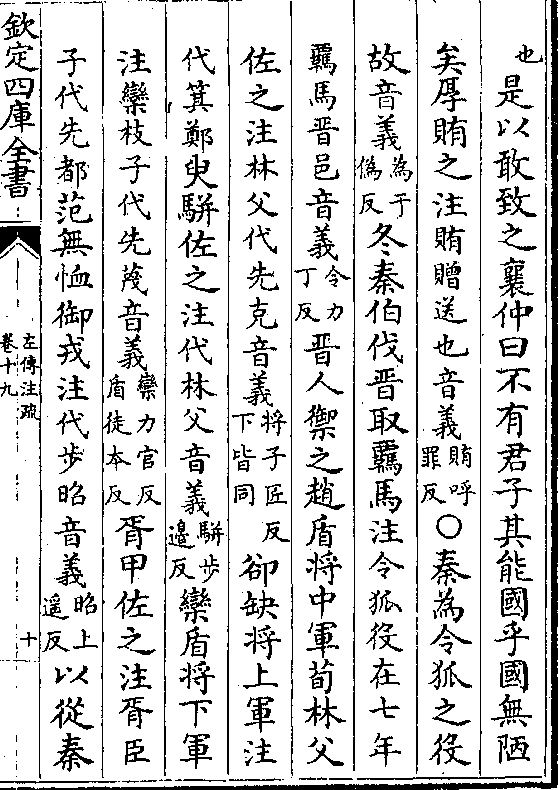 也是以敢致之襄仲曰不有君子其能國乎國無陋
矣厚賄之注賄贈送也音義賄呼罪反○秦為令狐之役
故音義為于偽反冬秦伯伐晉取羈馬注令狐役在七年
羈馬晉邑音義令力丁反晉人禦之趙盾將中軍荀林父
佐之注林父代先克音義將子匠反下皆同郤缺將上軍注
代箕鄭臾駢佐之注代林父音義駢步邊反欒盾將下軍
注欒枝子代先蔑音義欒力官反盾徒本反胥甲佐之注胥臣
子代先都范無恤御戎注代步昭音義昭上遥反以從秦
欽定四庫全書
左傳注疏
卷十九
十